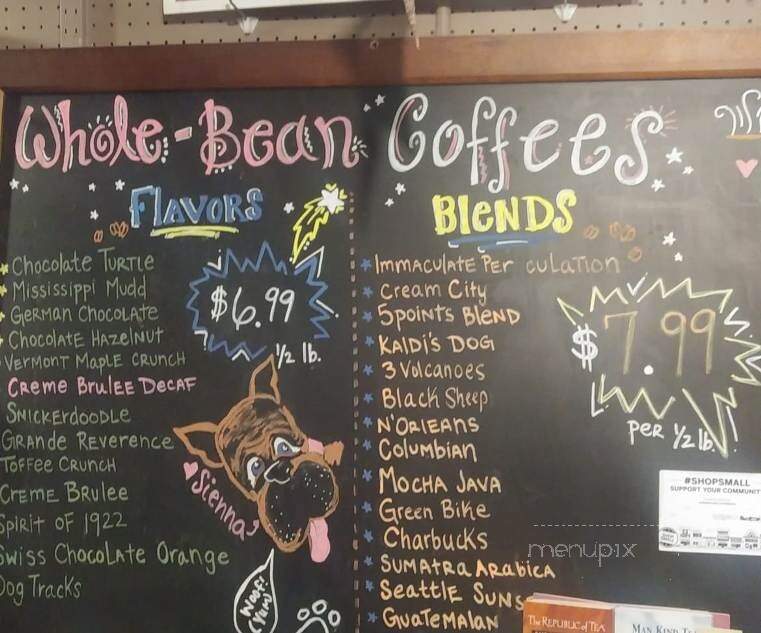 Whole-Bean Coffees
FLAVORS
Chocolate TURTLE
Mississippi Mudd
GERMAN CHOCOLATE
CHOCOLATE HAZELNUT
VERMONT MAPLE CRUNCH
CREME BRULEE DECAF
SNICKERDOODLE
GRANDE REVERENCE
TOFFEE CRUNCH
CREME BRULEE
SPIRIT OF 1922
SWISS CHOCOLATE ORANGE
Dog Tracks
$6.99
1/2 lb.
Sienna
WOOF!
(YUM)
BLENDS
IMMACULATE PER CULATION
CREAM CITY
5POINTS BLEND
KALDI'S DOG
3 Volcanoes
Black Sheep
N'ORLEANS
Columbian
MOCHA JAVA
Green Bike
Charbucks
SUMATRA ARABICA
SEATTLE SUNS
GUATEMALAN
$7.99
PER 1/2 lb.
#SHOPSMALL
SUPPORT YOUR COMMUNIT
menupix
THE REPUBLIC of TEA
MAN KIND TE